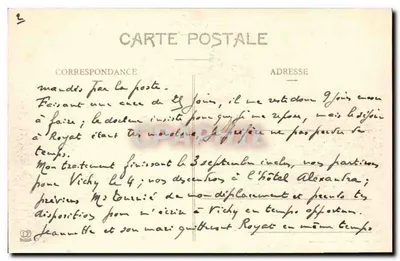 2
CARTE POSTALE
CORRESPONDANCE
ADRESSE
mandés par la poste.
Faisant une cure de 25 jours, il me reste donc 9 jours encore
à faire; le docteur insiste pour que je me repose, mais le séjour
à Royat étant je préfère ne pas perdre de
temps.
Mon traitement finissant le 3 septembre inclus, nous partirons
pour Vichy le 4; nos descentes à l'hôtel Alexandra;
préviens Mr de mon déplacement et prends tes
dispositions pour m'écrire à Vichy en temps opportun.
Jeannette et son mari quitteront Royat en même temps